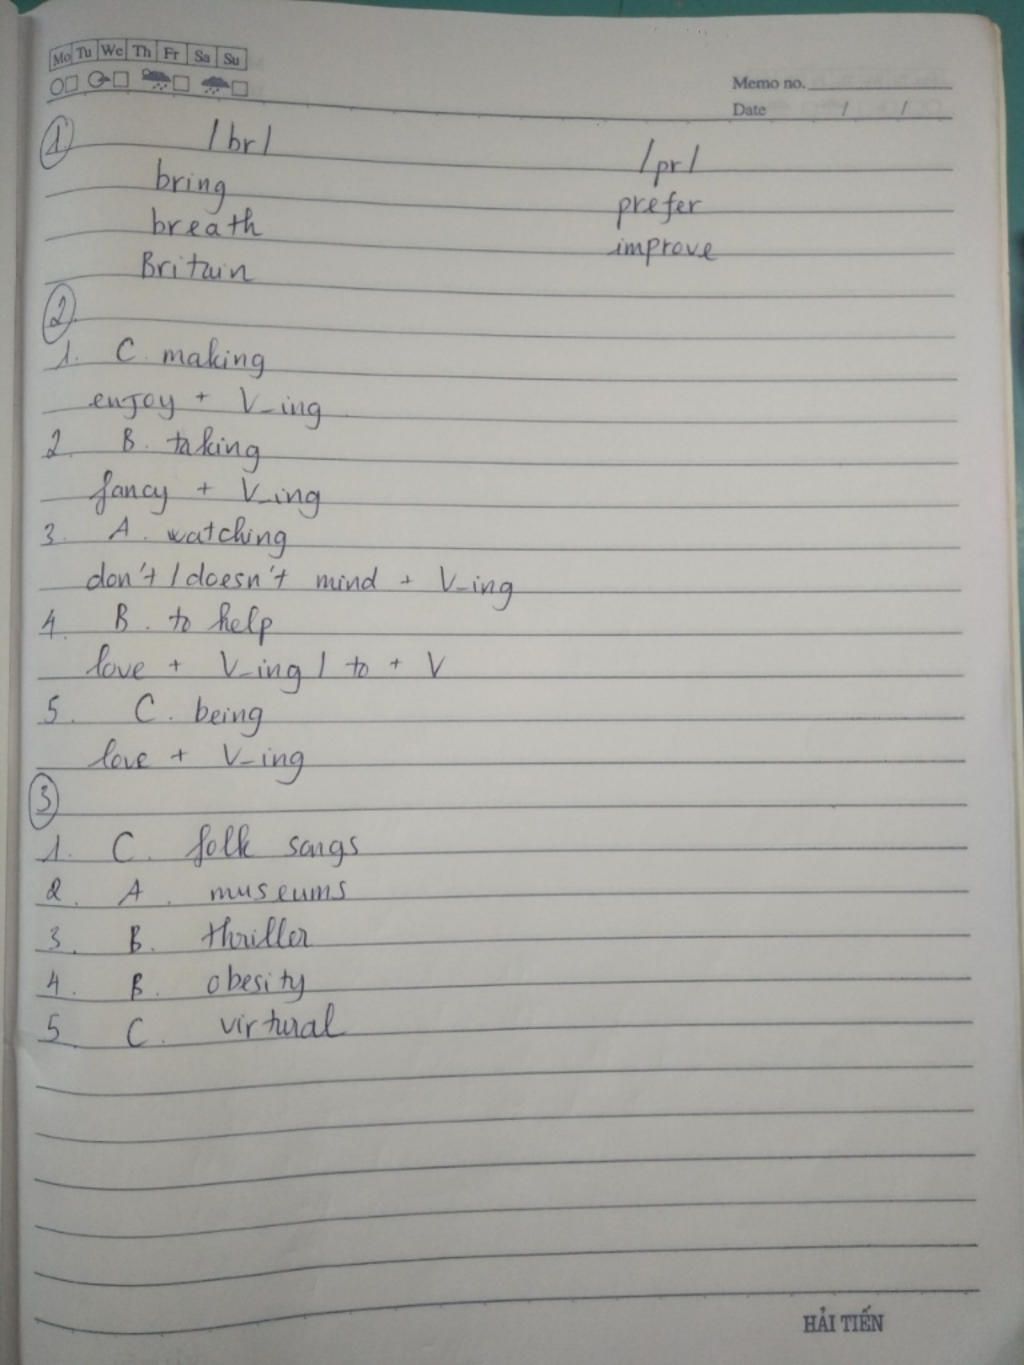 Mo Tu We Th Fr Sa Su
Memo no.
Date / /
1 /br/ /pr/
bring prefer
breath improve
Britain
2
1. C. making
enjoy + V-ing
2. B. taking
fancy + V-ing
3. A. watching
don't / doesn't mind + V-ing
4. B. to help
love + V-ing / to + V
5. C. being
love + V-ing
3
1. C. folk songs
2. A. museums
3. B. thriller
4. B. obesity
5. C. virtural
HẢI TIẾN